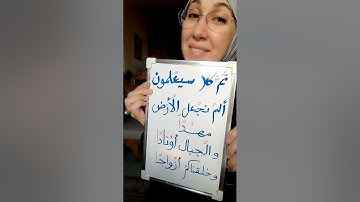 ثمَّ كلا سيعلمون
ألم نجعل الأرض
مهدًا
والجبال أوتادًا
وخلقناكم أزواجًا